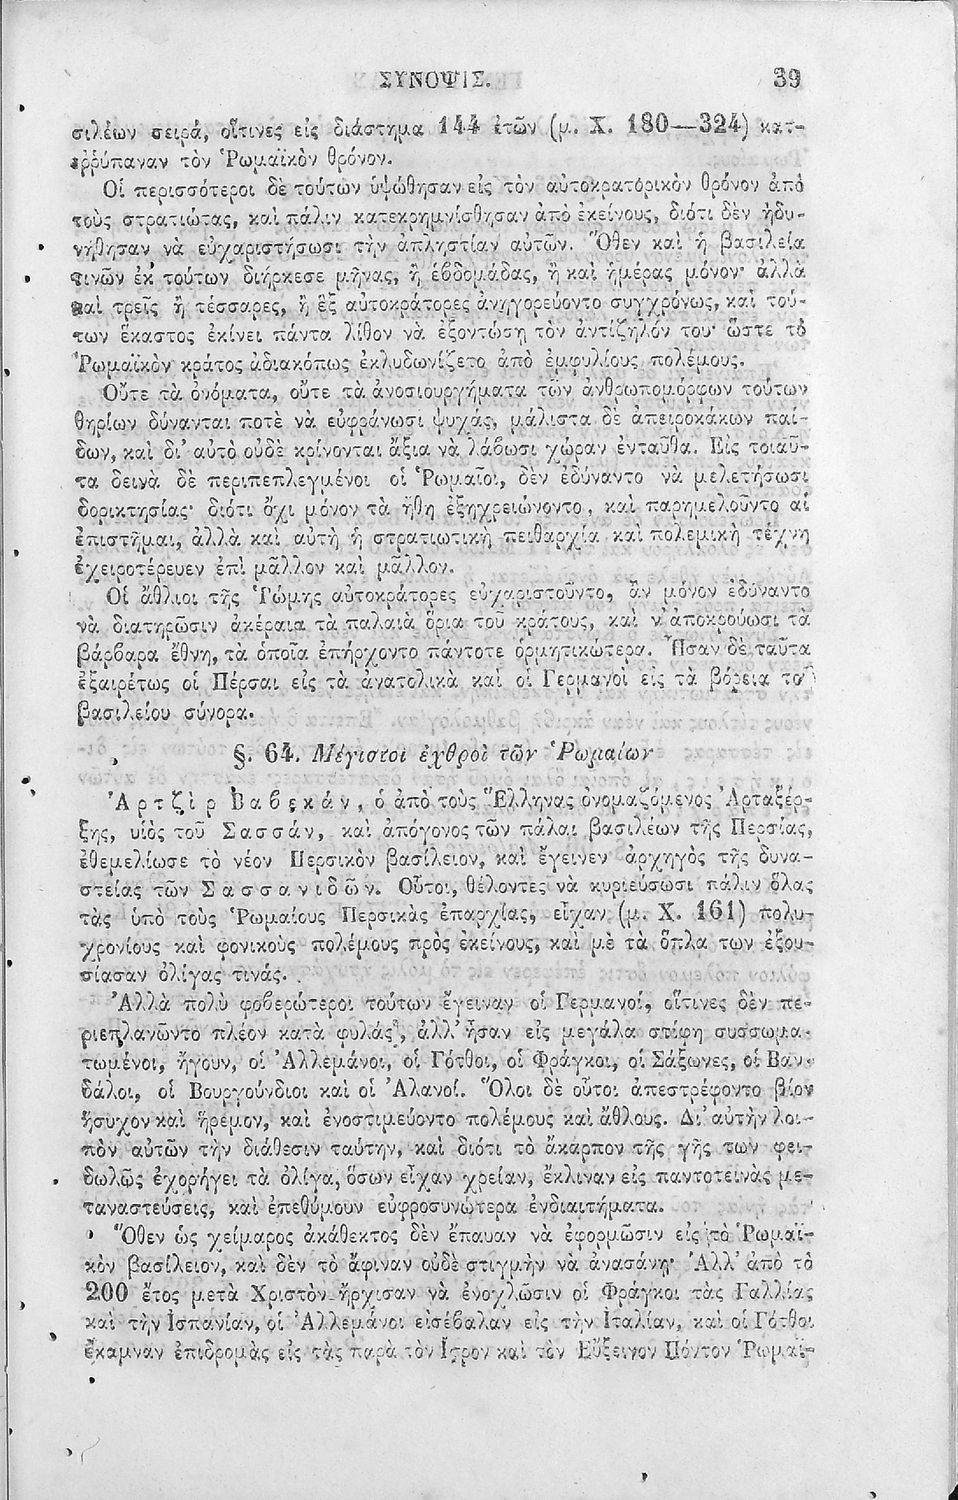 ΣΥΝΟΨΙΣ. 39
σιλέων σειρά, οἵτινες εἰς διάστημα 144 ἐτῶν (μ. Χ. 180—324) κατ-
ερρύπαναν τὸν Ῥωμαϊκὸν θρόνον.
Οἱ περισσότεροι δὲ τούτων ὑψώθησαν εἰς τὸν αὐτοκρατορικὸν θρόνον ἀπὸ
τοὺς στρατιώτας, καὶ πάλιν κατεκρημνίσθησαν ἀπὸ ἐκείνους, διότι δὲν ἠδυ-
νήθησαν νὰ εὐχαριστήσωσι τὴν ἀπληστίαν αὐτῶν. Ὅθεν καὶ ἡ βασιλεία
τινῶν ἐκ τούτων διήρκεσε μῆνας, ἢ ἑβδομάδας, ἢ καὶ ἡμέρας μόνον· ἀλλὰ
καὶ τρεῖς ἢ τέσσαρες, ἢ ἓξ αὐτοκράτορες ἀνηγορεύοντο συγχρόνως, καὶ τού-
των ἕκαστος ἐκίνει πάντα λίθον νὰ ἐξοντώσῃ τὸν ἀντίζηλόν του· ὥστε τὸ
Ῥωμαϊκὸν κράτος ἀδιακόπως ἐκλυδωνίζετο ἀπὸ ἐμφυλίους πολέμους.
Οὔτε τὰ ὀνόματα, οὔτε τὰ ἀνοσιουργήματα τῶν ἀνθρωπομόρφων τούτων
θηρίων δύνανται ποτὲ νὰ εὐφράνωσι ψυχὰς, μάλιστα δὲ ἀπειροκάκων παί-
δων, καὶ δι' αὐτὸ οὐδὲ κρίνονται ἄξια νὰ λάβωσι χώραν ἐνταῦθα. Εἰς τοιαῦ-
τα δεινὰ δὲ περιπεπλεγμένοι οἱ Ῥωμαῖοι, δὲν ἐδύναντο νὰ μελετήσωσι
δορικτησίας· διότι ὄχι μόνον τὰ ἤθη ἐξηχρειώνοντο, καὶ παρημελοῦντο αἱ
ἐπιστῆμαι, ἀλλὰ καὶ αὐτὴ ἡ στρατιωτικὴ πειθαρχία καὶ πολεμικὴ τέχνη
ἐχειροτέρευεν ἐπὶ μᾶλλον καὶ μᾶλλον.
Οἱ ἄθλιοι τῆς Ῥώμης αὐτοκράτορες εὐχαριστοῦντο, ἂν μόνον ἐδύναντο
νὰ διατηρῶσιν ἀκέραια τὰ παλαιὰ ὅρια τοῦ κράτους, καὶ ν' ἀποκρούωσι τὰ
βάρβαρα ἔθνη, τὰ ὁποῖα ἐπήρχοντο πάντοτε ὁρμητικώτερα. Ἦσαν δὲ ταῦτα
ἐξαιρέτως οἱ Πέρσαι εἰς τὰ ἀνατολικὰ καὶ οἱ Γερμανοὶ εἰς τὰ βόρεια τοῦ
βασιλείου σύνορα.
§. 64. Μέγιστοι ἐχθροὶ τῶν Ῥωμαίων
Ἀρτζὶρ Βαβεκάν, ὁ ἀπὸ τοὺς Ἕλληνας ὀνομαζόμενος Ἀρταξέρ-
ξης, υἱὸς τοῦ Σασσάν, καὶ ἀπόγονος τῶν πάλαι βασιλέων τῆς Περσίας,
ἐθεμελίωσε τὸ νέον Περσικὸν βασίλειον, καὶ ἔγεινεν ἀρχηγὸς τῆς δυνα-
στείας τῶν Σασσανιδῶν. Οὗτοι, θέλοντες νὰ κυριεύσωσι πάλιν ὅλας
τὰς ὑπὸ τοὺς Ῥωμαίους Περσικὰς ἐπαρχίας, εἶχαν (μ. Χ. 161) πολυ-
χρονίους καὶ φονικοὺς πολέμους πρὸς ἐκείνους, καὶ μὲ τὰ ὅπλα των ἐξου-
σίασαν ὀλίγας τινάς.
Ἀλλὰ πολὺ φοβερώτεροι τούτων ἔγειναν οἱ Γερμανοί, οἵτινες δὲν πε-
ριεπλανῶντο πλέον κατὰ φυλάς, ἀλλ' ἦσαν εἰς μεγάλα στίφη συσσωμα-
τωμένοι, ἤγουν, οἱ Ἀλλεμάνοι, οἱ Γότθοι, οἱ Φράγκοι, οἱ Σάξωνες, οἱ Βαν-
δάλοι, οἱ Βουργούνδιοι καὶ οἱ Ἀλανοί. Ὅλοι δὲ οὗτοι ἀπεστρέφοντο βίον
ἥσυχον καὶ ἤρεμον, καὶ ἐνοστιμεύοντο πολέμους καὶ ἄθλους. Δι' αὐτὴν λοι-
πὸν αὐτῶν τὴν διάθεσιν ταύτην, καὶ διότι τὸ ἄκαρπον τῆς γῆς των φει-
δωλῶς ἐχορήγει τὰ ὀλίγα, ὅσων εἶχαν χρείαν, ἔκλιναν εἰς παντοτεινὰς με-
ταναστεύσεις, καὶ ἐπεθύμουν εὐφροσυνώτερα ἐνδιαιτήματα.
Ὅθεν ὡς χείμαρος ἀκάθεκτος δὲν ἔπαυαν νὰ ἐφορμῶσιν εἰς τὸ Ῥωμαϊ-
κὸν βασίλειον, καὶ δὲν τὸ ἄφιναν οὐδὲ στιγμὴν νὰ ἀνασάνῃ· Ἀλλ' ἀπὸ τὸ
200 ἔτος μετὰ Χριστὸν ἤρχισαν νὰ ἐνοχλῶσιν οἱ Φράγκοι τὰς Γαλλίας
καὶ τὴν Ἱσπανίαν, οἱ Ἀλλεμάνοι εἰσέβαλαν εἰς τὴν Ἰταλίαν, καὶ οἱ Γότθοι
ἔκαμναν ἐπιδρομὰς εἰς τὰς παρὰ τὸν Ἴστρον καὶ τὸν Εὔξεινον Πόντον Ῥωμαϊ-